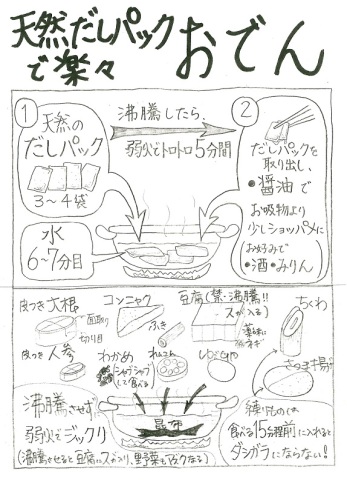 天然だしパック
で楽々
おでん
①
天然の
だしパック
3〜4袋
水
6〜7分目
沸騰したら、
弱火でトロトロ5分間
②
だしパックを
取り出し、
●醤油で
お吸物より
少しショッパメに
お好みで
●酒●みりん
皮つき大根
面取り
切り目
コンニャク
ふき
豆腐(禁・沸騰!!
スが入る)
ちくわ
皮つき人参
わかめ
シャブシャブ
して食べる
れんこん
ゆで卵
さつま揚げ
沸騰させず、
弱火でジックリ
(沸騰させると豆腐にスが入り、野菜もアクになる)
昆布
練りものは、
食べる15分程前に入れると
ダシガラにならない!